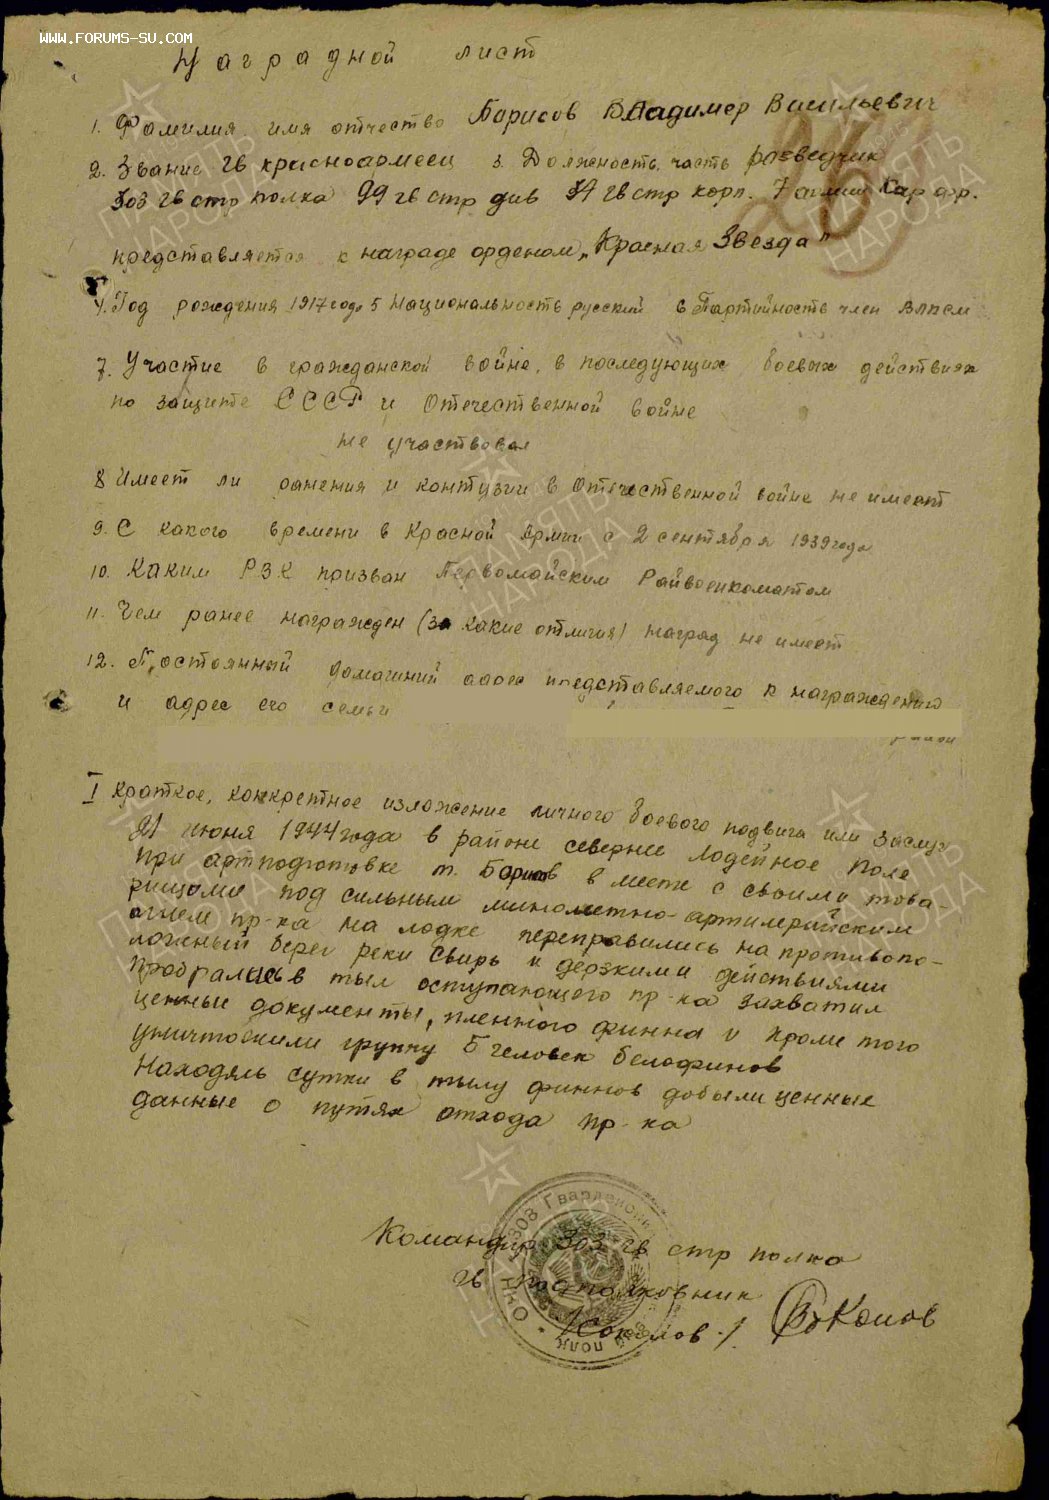 WWW.FORUMS-SU.COM
Наградной лист
1. Фамилия, имя отчество Борисов Владимер Васильевич
2. Звание гв красноармеец 3. Должность, часть разведчик
303 гв стр полка 99 гв стр див гв стр корп. 7 армии Кар фр.
представляется к награде орденом „Красная Звезда"
4. Год рождения 1917 года 5 Национальность русский 6 Партийность член ВЛКСМ
7. Участие в гражданской войне, в последующих боевых действиях
по защите СССР и Отечественной войне
не участвовал
8 Имеет ли ранения и контузии в Отечественной войне не имеет
9. С какого времени в Красной Армии с 2 сентября 1939 года
10. Каким РЗК призван Первомайским Райвоенкоматом
11. Чем ранее награжден (за какие отличия) наград не имеет
12. Постоянный домашний адрес представляемого к награждению
и адрес его семьи
I краткое, конкретное изложение личного боевого подвига или заслуг
21 июня 1944 года в районе севернее Лодейное Поле
при артподготовке т. Борисов в месте с своими това-
рищами под сильным минометно-артилерийским
огнем пр-ка на лодке переправились на противопо-
ложный берег реки Свирь и дерзкими действиями
пробрались в тыл оступающего пр-ка захватил
ценные документы, пленного финна и кроме того
уничтожили группу 5 человек белофинов
Находясь сутки в тылу финнов добыли ценные
данные о путях отхода пр-ка
Командир 303 гв стр полка
гв подполковник
/Соколов./ Соколов
303 Гвардейский
полк
ПАМЯТЬ
НАРОДА